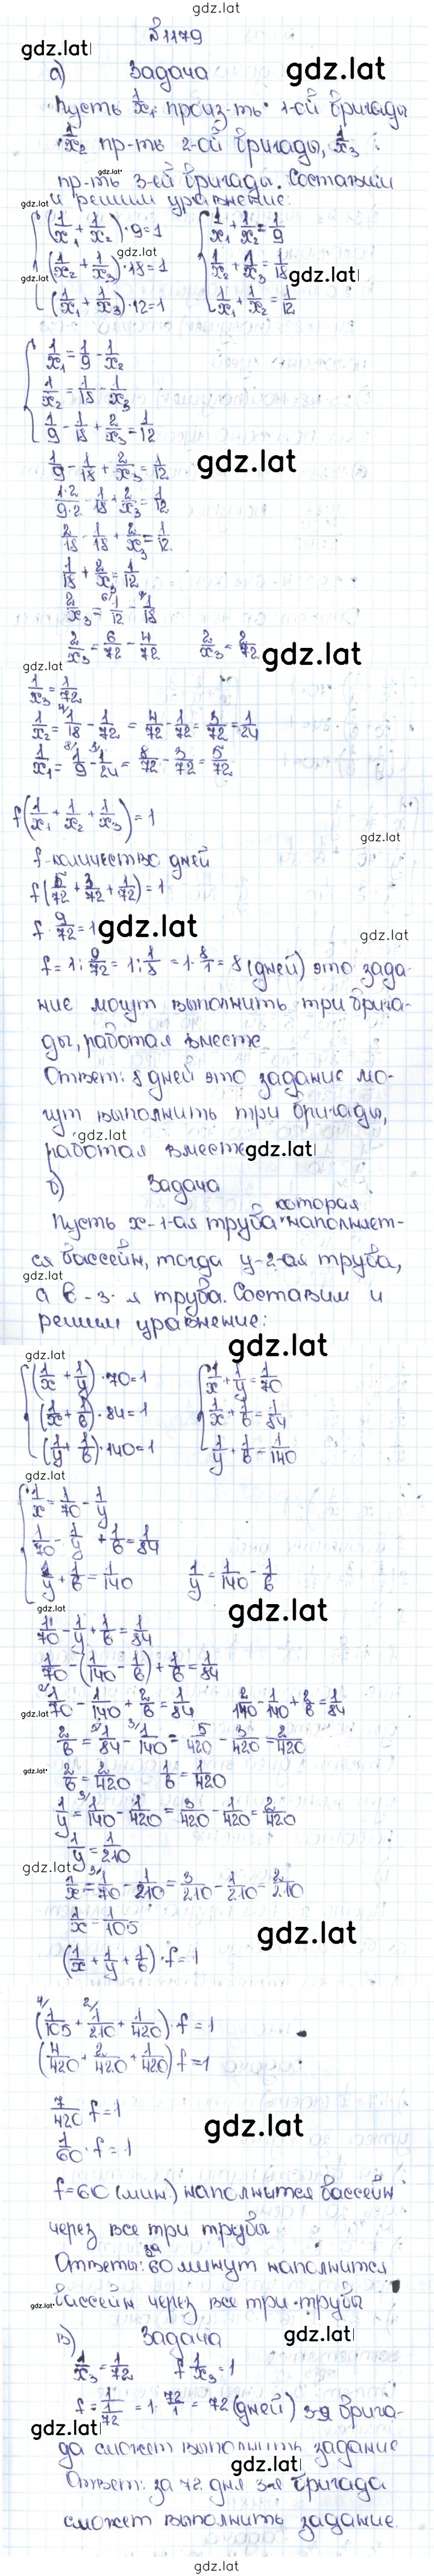 gdz.lat
№1179
gdz.lat
а) Задача
gdz.lat
Пусть 1/x₁ произ-ть 1-ой бригады
1/x₂ пр-ть 2-ой бригады, 1/x₃
gdz.lat
пр-ть 3-ей бригады. Составим
и решим уравнение:
gdz.lat
(1/x₁ + 1/x₂)·9=1   1/x₁ + 1/x₂ = 1/9
gdz.lat
(1/x₂ + 1/x₃)·18=1   1/x₂ + 1/x₃ = 1/18
gdz.lat
gdz.lat
(1/x₁ + 1/x₃)·12=1   1/x₁ + 1/x₂ = 1/12
1/x₁ = 1/9 - 1/x₂
1/x₂ = 1/18 - 1/x₃
1/9 - 1/18 + 2/x₃ = 1/12
1/9 - 1/18 + 2/x₃ = 1/12
gdz.lat
1·2/9·2 - 1/18 + 2/x₃ = 1/12
2/18 - 1/18 + 2/x₃ = 1/12
1/18 + 2/x₃ = 1/12
2/x₃ = 1/12 - 1/18
2/x₃ = 6/72 - 4/72   2/x₃ = 2/72
gdz.lat
gdz.lat
1/x₃ = 1/72
1/x₂ = 1/18 - 1/72 = 4/72 - 1/72 = 3/72 = 1/24
1/x₁ = 1/9 - 1/24 = 8/72 - 3/72 = 5/72
f(1/x₁ + 1/x₂ + 1/x₃) = 1
gdz.lat
f-количество дней
f(5/72 + 3/72 + 1/72) = 1
f·9/72 = 1
gdz.lat
gdz.lat
f = 1 : 9/72 = 1 : 1/8 = 1·8/1 = 8 (дней) это зада-
ние могут выполнить три брига-
ды, работая вместе
Ответ: 8 дней это задание мо-
гут выполнить три бригады,
gdz.lat
работая вместе
gdz.lat
б) Задача
которая
Пусть x-1-ая труба наполняет-
ся бассейн, тогда y-2-ая труба,
gdz.lat
а b-3-я труба. Составим и
решим уравнение:
gdz.lat
gdz.lat
(1/x + 1/y)·70=1   1/x + 1/y = 1/70
(1/x + 1/b)·84=1   1/x + 1/b = 1/84
(1/y + 1/b)·140=1   1/y + 1/b = 1/140
gdz.lat
1/x = 1/70 - 1/y
1/70 - 1/y + 1/b = 1/84
1/y + 1/b = 1/140   1/y = 1/140 - 1/b
gdz.lat
gdz.lat
1/70 - 1/y + 1/b = 1/84
1/70 - (1/140 - 1/b) + 1/b = 1/84
1/70 - 1/140 + 2/b = 1/84   2/140 - 1/140 + 2/b = 1/84
gdz.lat
2/b = 1/84 - 1/140 = 5/420 - 3/420 = 2/420
gdz.lat
2/b = 2/420   1/b = 1/420
1/y = 1/140 - 1/420 = 3/420 - 1/420 = 2/420
1/y = 1/210
gdz.lat
1/x = 1/70 - 1/210 = 3/210 - 1/210 = 2/210
1/x = 1/105
gdz.lat
(1/x + 1/y + 1/b)·f = 1
(1/105 + 1/210 + 1/420)·f = 1
(4/420 + 2/420 + 1/420) f = 1
7/420 f = 1
gdz.lat
1/60·f = 1
f=60 (мин.) наполнится бассейн
через все три трубы
Ответы: за 60 минут наполнится
gdz.lat
бассейн через все три трубы
gdz.lat
в) Задача
1/x₃ = 1/72   f·1/x₃ = 1
f = 1/(1/72) = 1·72/1 = 72 (дней) 3-я брига-
gdz.lat
да сможет выполнить задание
gdz.lat
Ответ: за 72 дня 3-я бригада
сможет выполнить задание.
gdz.lat